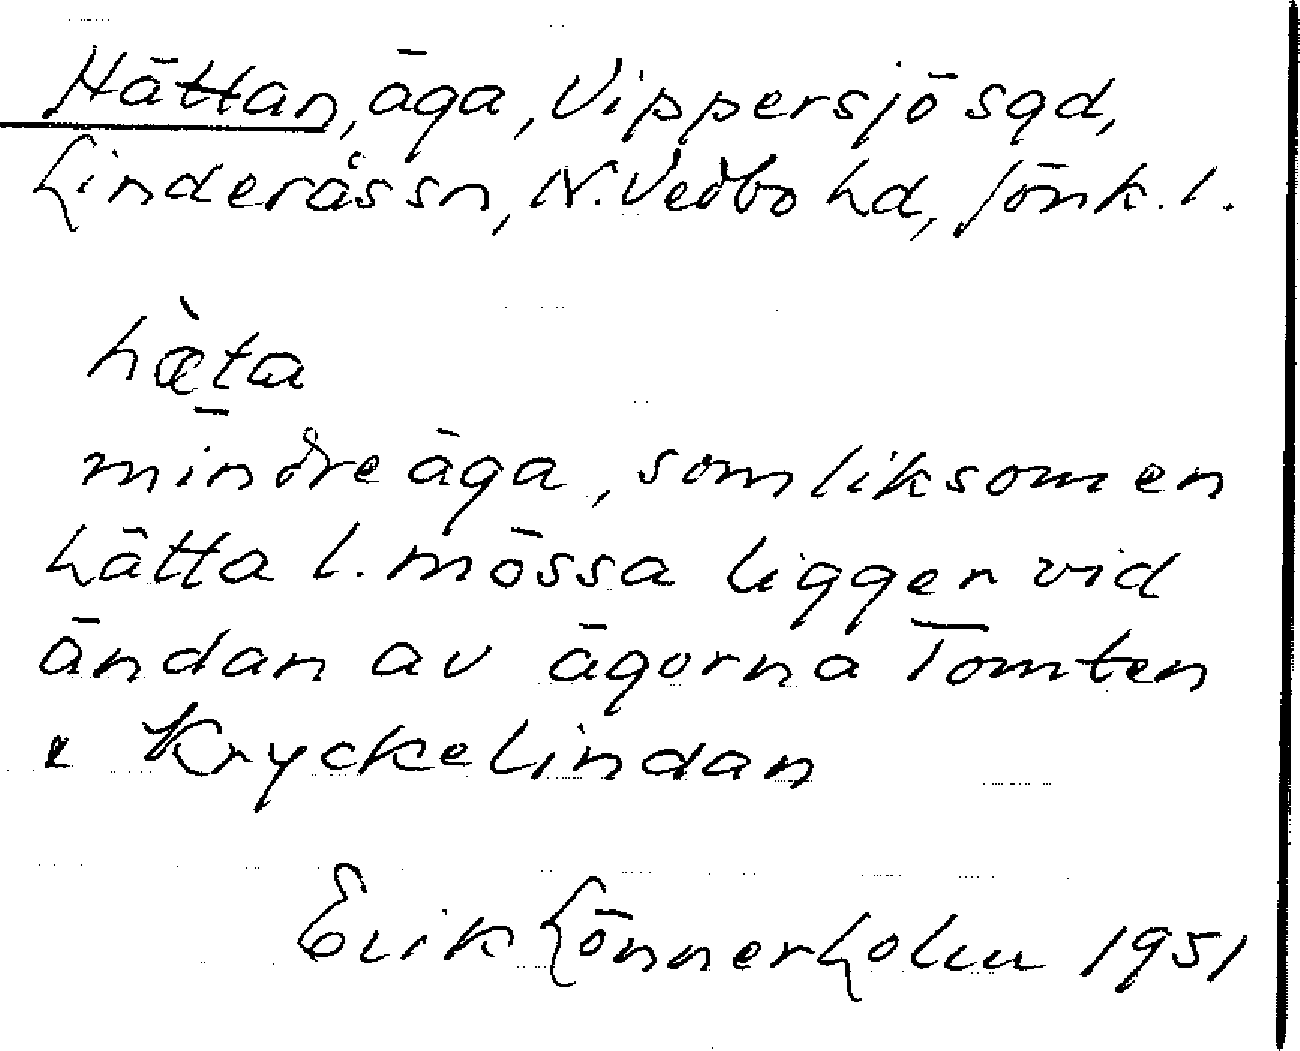 Hättan, äga, Vippersjö sgd,
Linderås sn, N. Vedbo hd, Jönk. l.
hæ̀ta
mindre äga, som liksom en
hätta l. mössa ligger vid
ändan av ägorna Tomten
o Kryckelindan
Erik Lönnerholm 1951